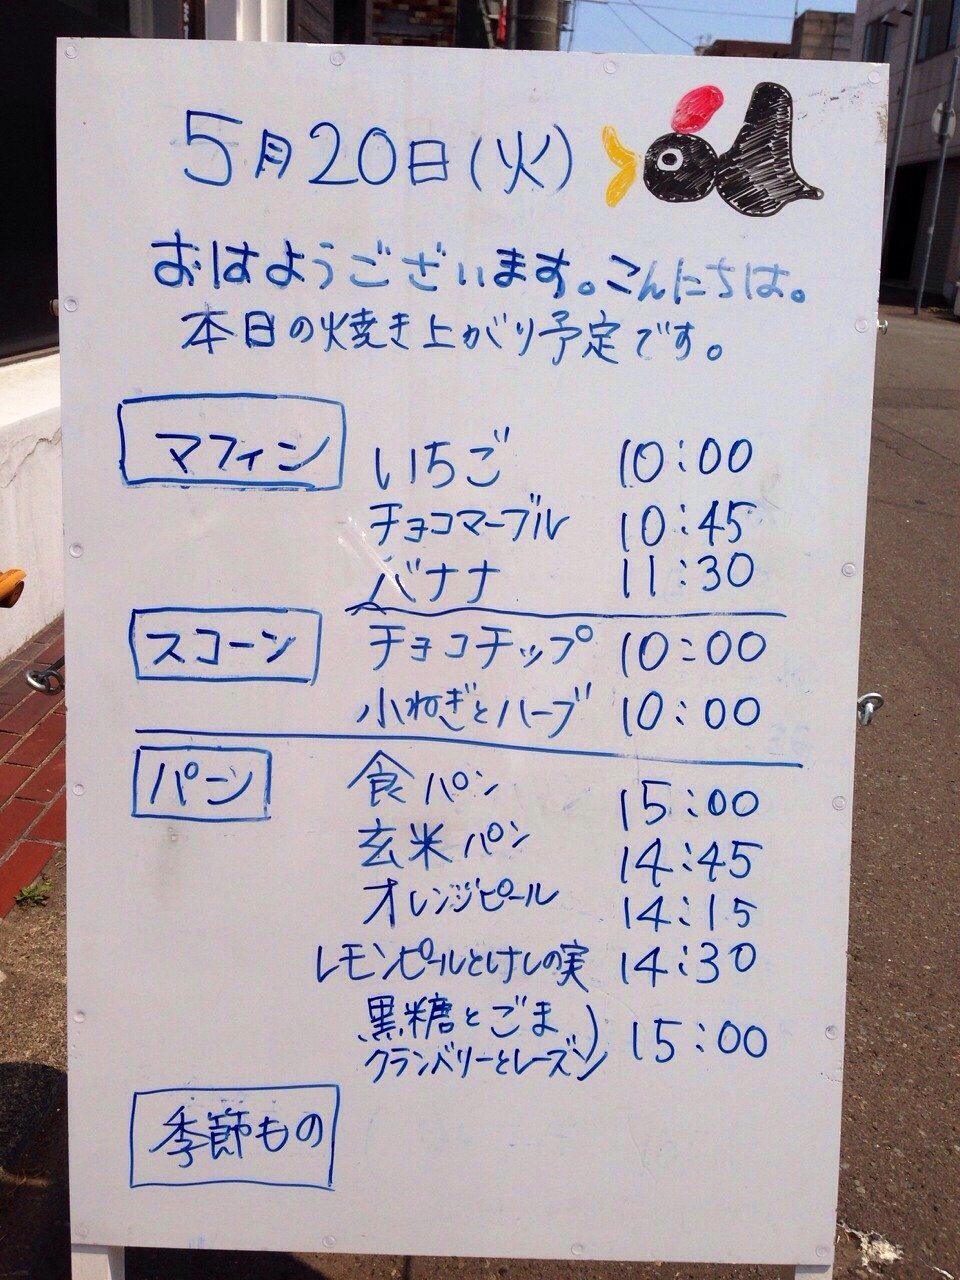 5月20日(火)
おはようございます。こんにちは。
本日の焼き上がり予定です。
マフィン いちご 10:00
チョコマーブル 10:45
バナナ 11:30
スコーン チョコチップ 10:00
小ねぎとハーブ 10:00
パーン 食パン 15:00
玄米パン 14:45
オレンジピール 14:15
レモンピールとけしの実 14:30
黒糖とごま
クランベリーとレーズン) 15:00
季節もの